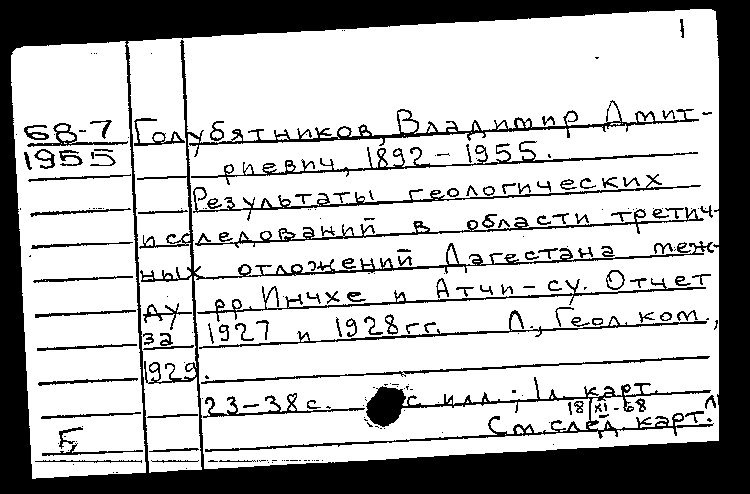 1
68-7 Голубятников, Владимир Дмит-
1955 риевич, 1892-1955.
Результаты геологических
исследований в области третич-
ных отложений Дагестана меж-
ду рр. Инчхе и Атчи-су. Отчет
за 1927 и 1928 гг. Л., Геол. ком.,
1929.
23-38 с. с илл.; 1 л. карт.
18/XI-68
Б См. след. карт.